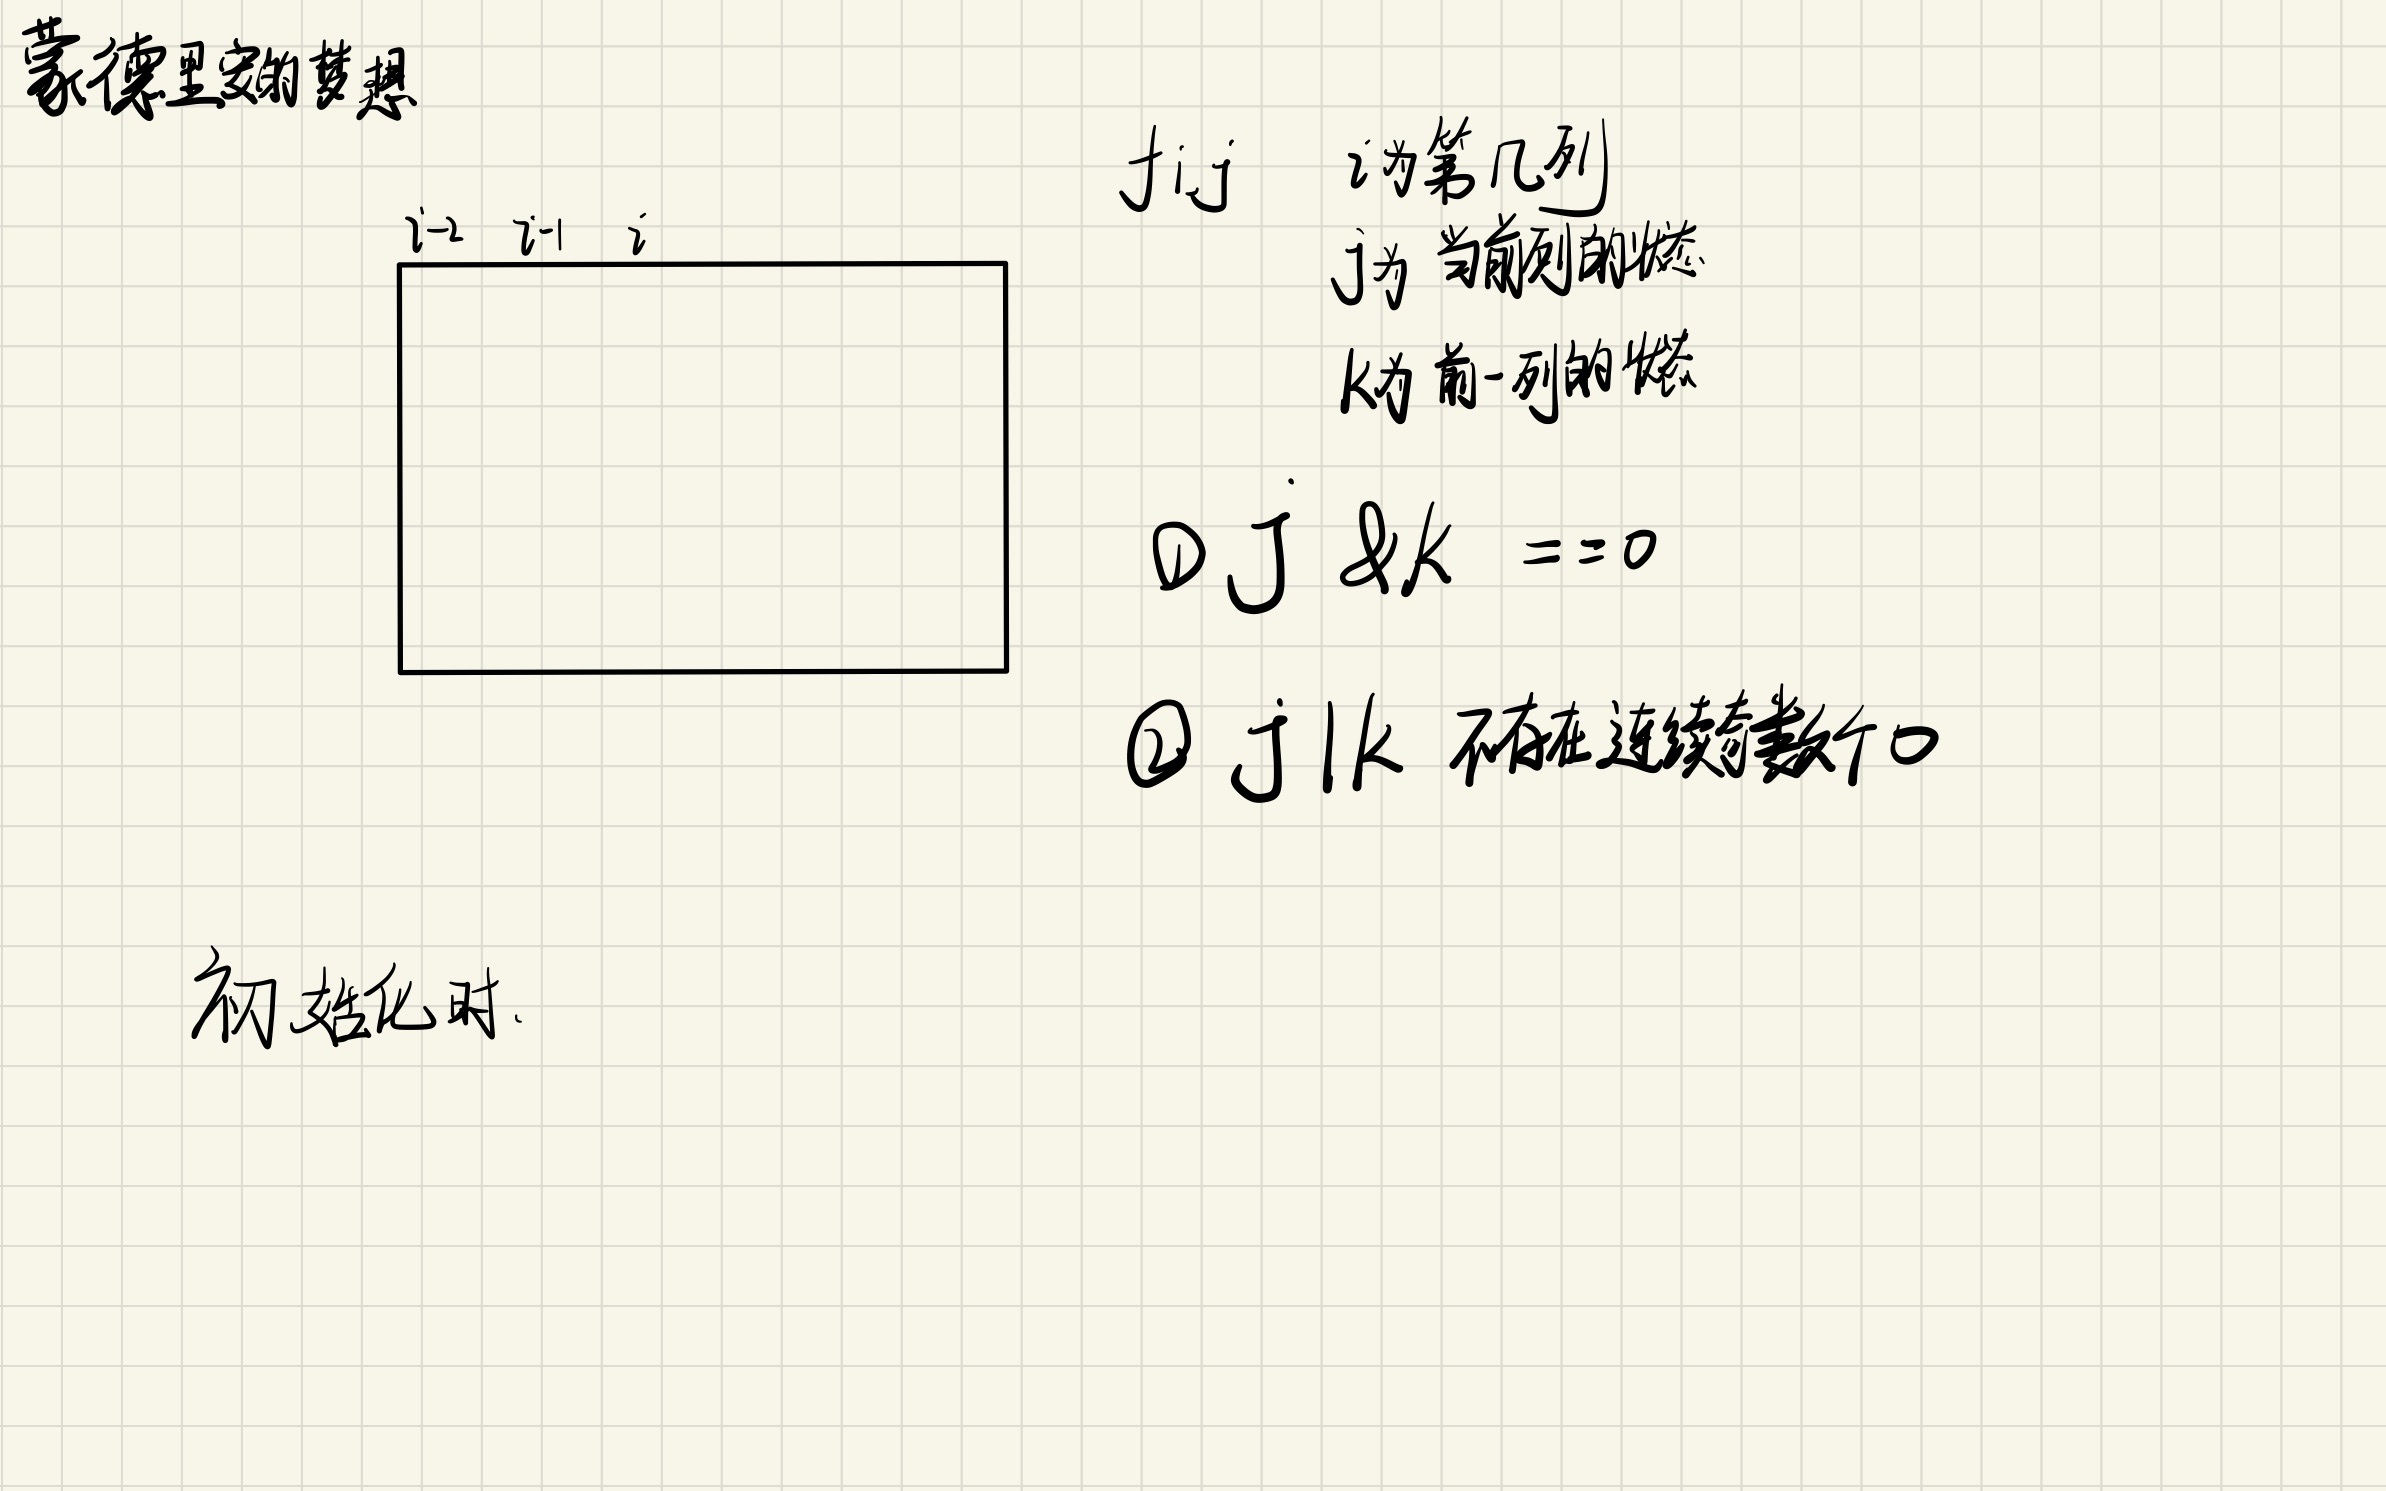 蒙德里安的梦想
fi,j i为第几列
j为当前列的状态
k为前一列的状态
i-2 i-1 i
① j &k ==0
② j|k 不存在连续奇数个0
初始化时.